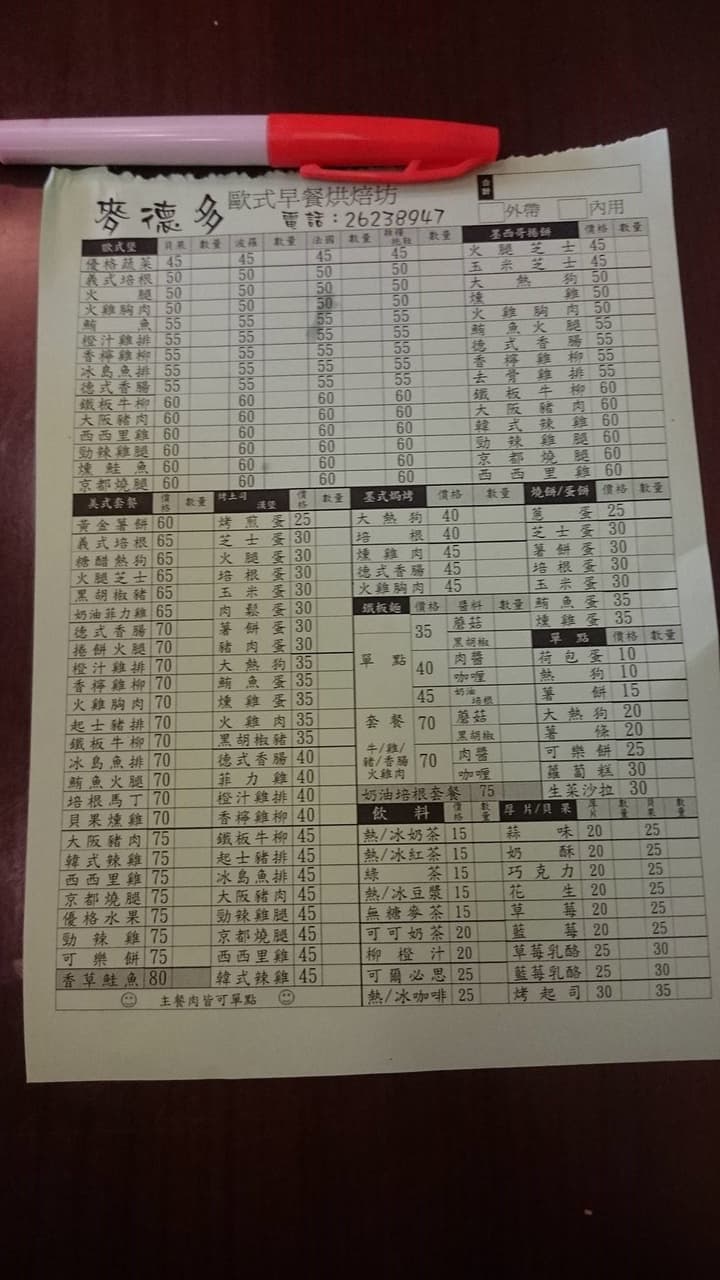 合計
麥德多 歐式早餐烘焙坊
電話：26238947 外帶 內用
歐式堡 貝果 數量 波羅 數量 法國 數量 雜糧 數量
優格蔬菜 45 45 45 45
義式培根 50 50 50 50
火腿 50 50 50 50
火雞胸肉 50 50 50 50
鮪魚 55 55 55 55
橙汁雞排 55 55 55 55
香檸雞柳 55 55 55 55
冰島魚排 55 55 55 55
德式香腸 55 55 55 55
鐵板牛柳 60 60 60 60
大阪豬肉 60 60 60 60
西西里雞 60 60 60 60
勁辣雞腿 60 60 60 60
燻鮭魚 60 60 60 60
京都燒腿 60 60 60 60
墨西哥捲餅 價格 數量
火腿芝士 45
玉米芝士 45
大熱狗 50
燻雞 50
火雞胸肉 50
鮪魚火腿 55
德式香腸 55
香檸雞柳 55
去骨雞排 55
鐵板牛柳 60
大阪豬肉 60
韓式辣雞 60
勁辣雞腿 60
京都燒腿 60
西西里雞 60
美式套餐 價格 數量
黃金薯餅 60
義式培根 65
糖醋熱狗 65
火腿芝士 65
黑胡椒豬 65
奶油菲力雞 65
德式香腸 70
捲餅火腿 70
橙汁雞排 70
香檸雞柳 70
火雞胸肉 70
起士豬排 70
鐵板牛柳 70
冰島魚排 70
鮪魚火腿 70
培根馬丁 70
貝果燻雞 70
大阪豬肉 75
韓式辣雞 75
西西里雞 75
京都燒腿 75
優格水果 75
勁辣雞 75
可樂餅 75
香草鮭魚 80
主餐肉皆可單點
烤土司 漢堡 價格 數量
烤煎蛋 25
芝士蛋 30
火腿蛋 30
培根蛋 30
玉米蛋 30
肉鬆蛋 30
薯餅蛋 30
豬肉蛋 30
大熱狗 35
鮪魚蛋 35
燻雞蛋 35
火雞肉 35
黑胡椒豬 35
德式香腸 40
菲力雞 40
橙汁雞排 40
香檸雞柳 40
鐵板牛柳 45
起士豬排 45
冰島魚排 45
大阪豬肉 45
勁辣雞腿 45
京都燒腿 45
西西里雞 45
韓式辣雞 45
墨式焗烤 價格 數量
大熱狗 40
培根 40
燻雞肉 45
德式香腸 45
火雞胸肉 45
鐵板麵 價格 醬料 數量
單點 35 蘑菇
黑胡椒
40 肉醬
咖喱
45 奶油培根
套餐 70 蘑菇
黑胡椒
牛/雞/豬/香腸 火雞肉 70 肉醬
咖喱
奶油培根套餐 75
燒餅/蛋餅 價格 數量
蔥蛋 25
芝士蛋 30
薯餅蛋 30
培根蛋 30
玉米蛋 30
鮪魚蛋 35
燻雞蛋 35
單點 價格 數量
荷包蛋 10
熱狗 10
薯餅 15
大熱狗 20
薯條 20
可樂餅 25
蘿蔔糕 30
生菜沙拉 30
飲料 價格 數量
熱/冰奶茶 15
熱/冰紅茶 15
綠茶 15
熱/冰豆漿 15
無糖麥茶 15
可可奶茶 20
柳橙汁 20
可爾必思 25
熱/冰咖啡 25
厚片/貝果 厚片 數量 貝果 數量
蒜味 20 25
奶酥 20 25
巧克力 20 25
花生 20 25
草莓 20 25
藍莓 20 25
草莓乳酪 25 30
藍莓乳酪 25 30
烤起司 30 35